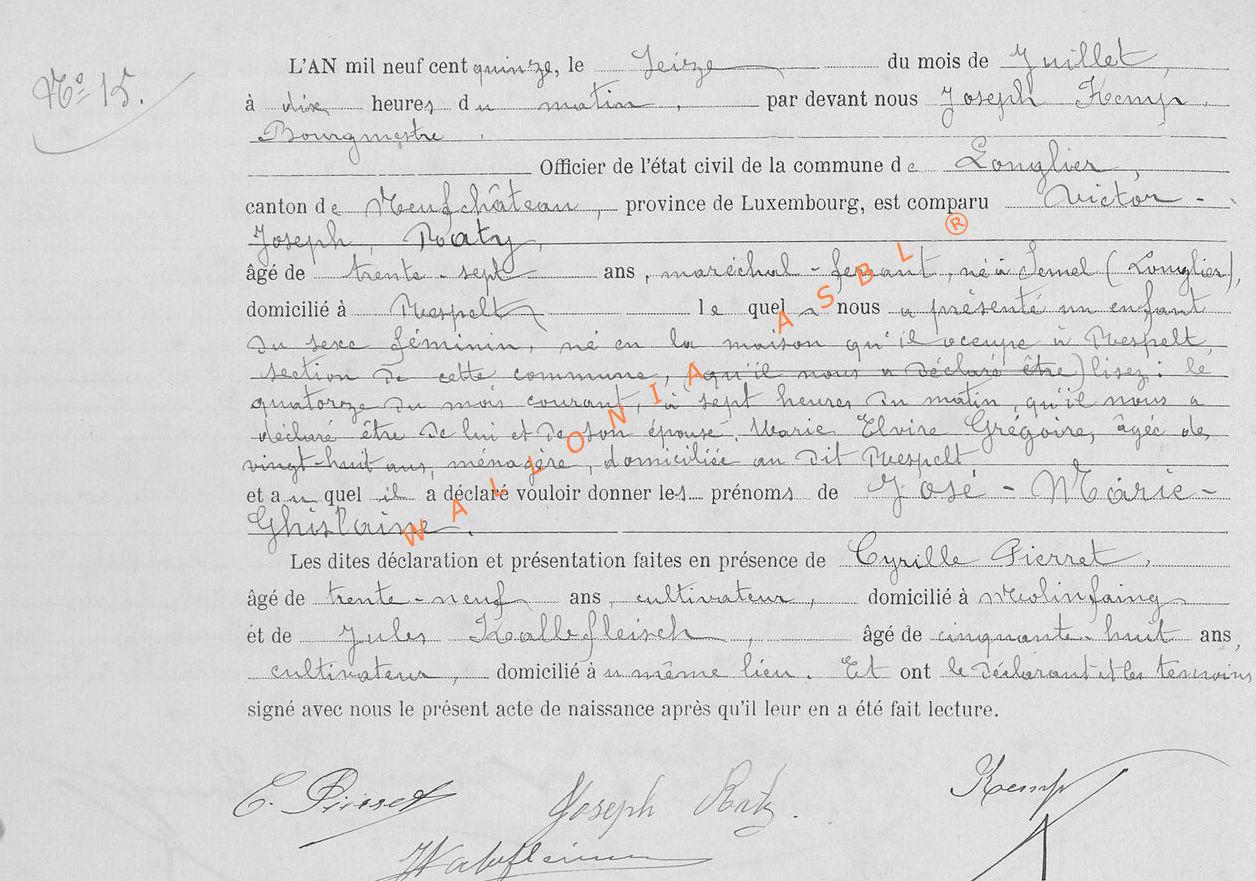 Nº 15.
L'AN mil neuf cent quinze, le Seize du mois de Juillet,
à dix heures du matin, par devant nous Joseph Kemp,
Bourgmestre.
Officier de l'état civil de la commune de Longlier,
canton de Neufchâteau, province de Luxembourg, est comparu Victor-
Joseph, Raty,
âgé de trente-sept ans, maréchal-ferrant, né à Semel (Longlier),
domicilié à Respelt le quel nous a présenté un enfant
du sexe féminin, né en la maison qu'il occupe à Respelt,
section de cette commune, (qu'il nous a déclaré être) lisez: le
quatorze du mois courant, à sept heures du matin, qu'il nous a
déclaré être de lui et de son épouse, Marie Elvire Grégoire, âgée de
vingt-huit ans, ménagère, domiciliée au dit Respelt
et au quel il a déclaré vouloir donner les prénoms de José-Marie-
Ghislaine.
Les dites déclaration et présentation faites en présence de Cyrille Pierret,
âgé de trente-neuf ans, cultivateur, domicilié à Molinfaing
et de Jules Kalbfleisch, âgé de cinquante-huit ans,
cultivateur, domicilié au même lieu. Et ont le déclarant et les témoins
signé avec nous le présent acte de naissance après qu'il leur en a été fait lecture.
C. Pierret Joseph Raty. Kemp
WALLONIA ASBL ®